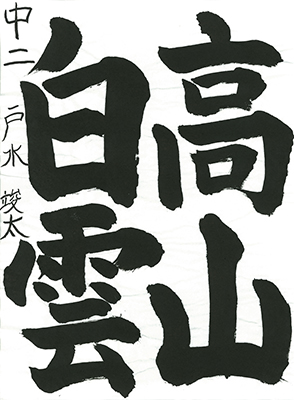 高山
白雲
中二 戸水 竣太